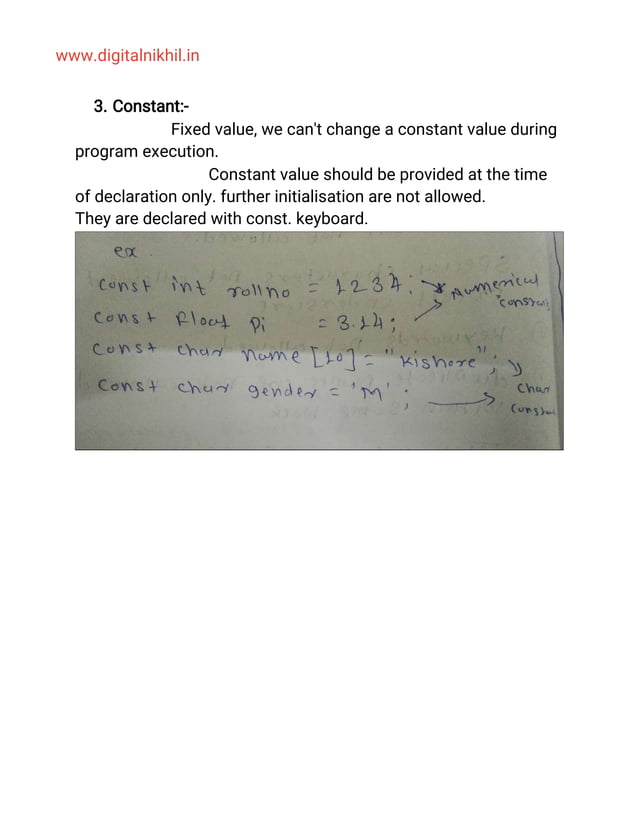 www.digitalnikhil.in
3. Constant:-
Fixed value, we can't change a constant value during
program execution.
Constant value should be provided at the time
of declaration only. further initialisation are not allowed.
They are declared with const. keyboard.
ex.
const int rollno = 1234; Numerical
const float pi = 3.14; constant
const char name [10] = "kishore";
const char gender = 'M'; char